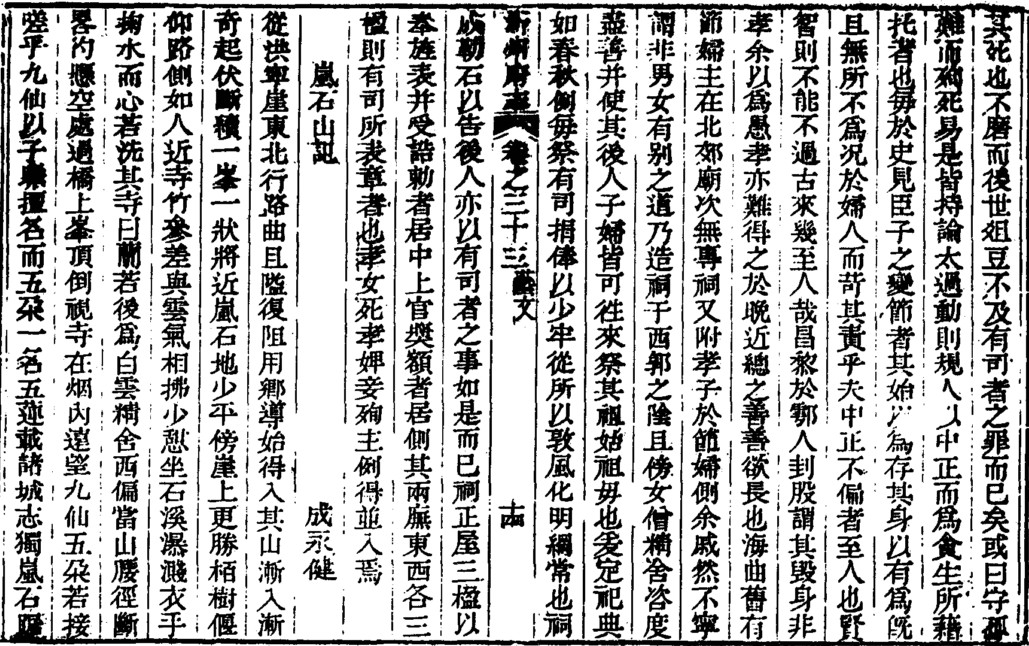 其死也不磨而後世俎豆不及有司者之罪而已矣或曰守孤
難而殉死易是皆持論太過動則規人以中正而爲貪生所藉
托者也每於史見臣子之變節者其始以爲存其身以有爲旣
且無所不爲况於婦人而苛其責乎夫中正不偏者至人也賢
智則不能不過古來幾至人哉昌黎於鄠人刲股謂其毀身非
孝余以爲愚孝亦難得之於晚近總之善善欲長也海曲舊有
節婦主在北郊廟次無專祠又附孝子於節婦側余戚然不寧
謂非男女有别之道乃造祠于西郭之陰且傍女僧精舍咨度
盡善并使其後人子婦皆可徃來祭其祖始祖毋也爰定祀典
如春秋例每祭有司捐俸以少牢從所以敦風化明綱常也祠
沂州府志 卷之三十三 藝文 十四
成勒石以告後人亦以有司者之事如是而已祠正屋三楹以
奉旌表并受誥勅者居中上官奬額者居側其兩廡東西各三
楹則有司所表章者也孝女死孝婢妾殉主例得並入焉
嵐石山記 成永健
從洪寧崖東北行路曲且隘復阻用鄉導始得入其山漸入漸
奇起伏斷續一峯一狀將近嵐石地少平傍崖上更勝栢樹偃
仰路側如人近寺竹參差與雲氣相拂少憇坐石溪瀑濺衣手
掬水而心若洗其寺曰蘭若後爲白雲精舍西偏當山腰徑斷
畧彴懸空處過橋上峯頂倒視寺在烟內遠望九仙五朶若接
嗟乎九仙以子瞻擅名而五朶一名五蓮載諸城志獨嵐石